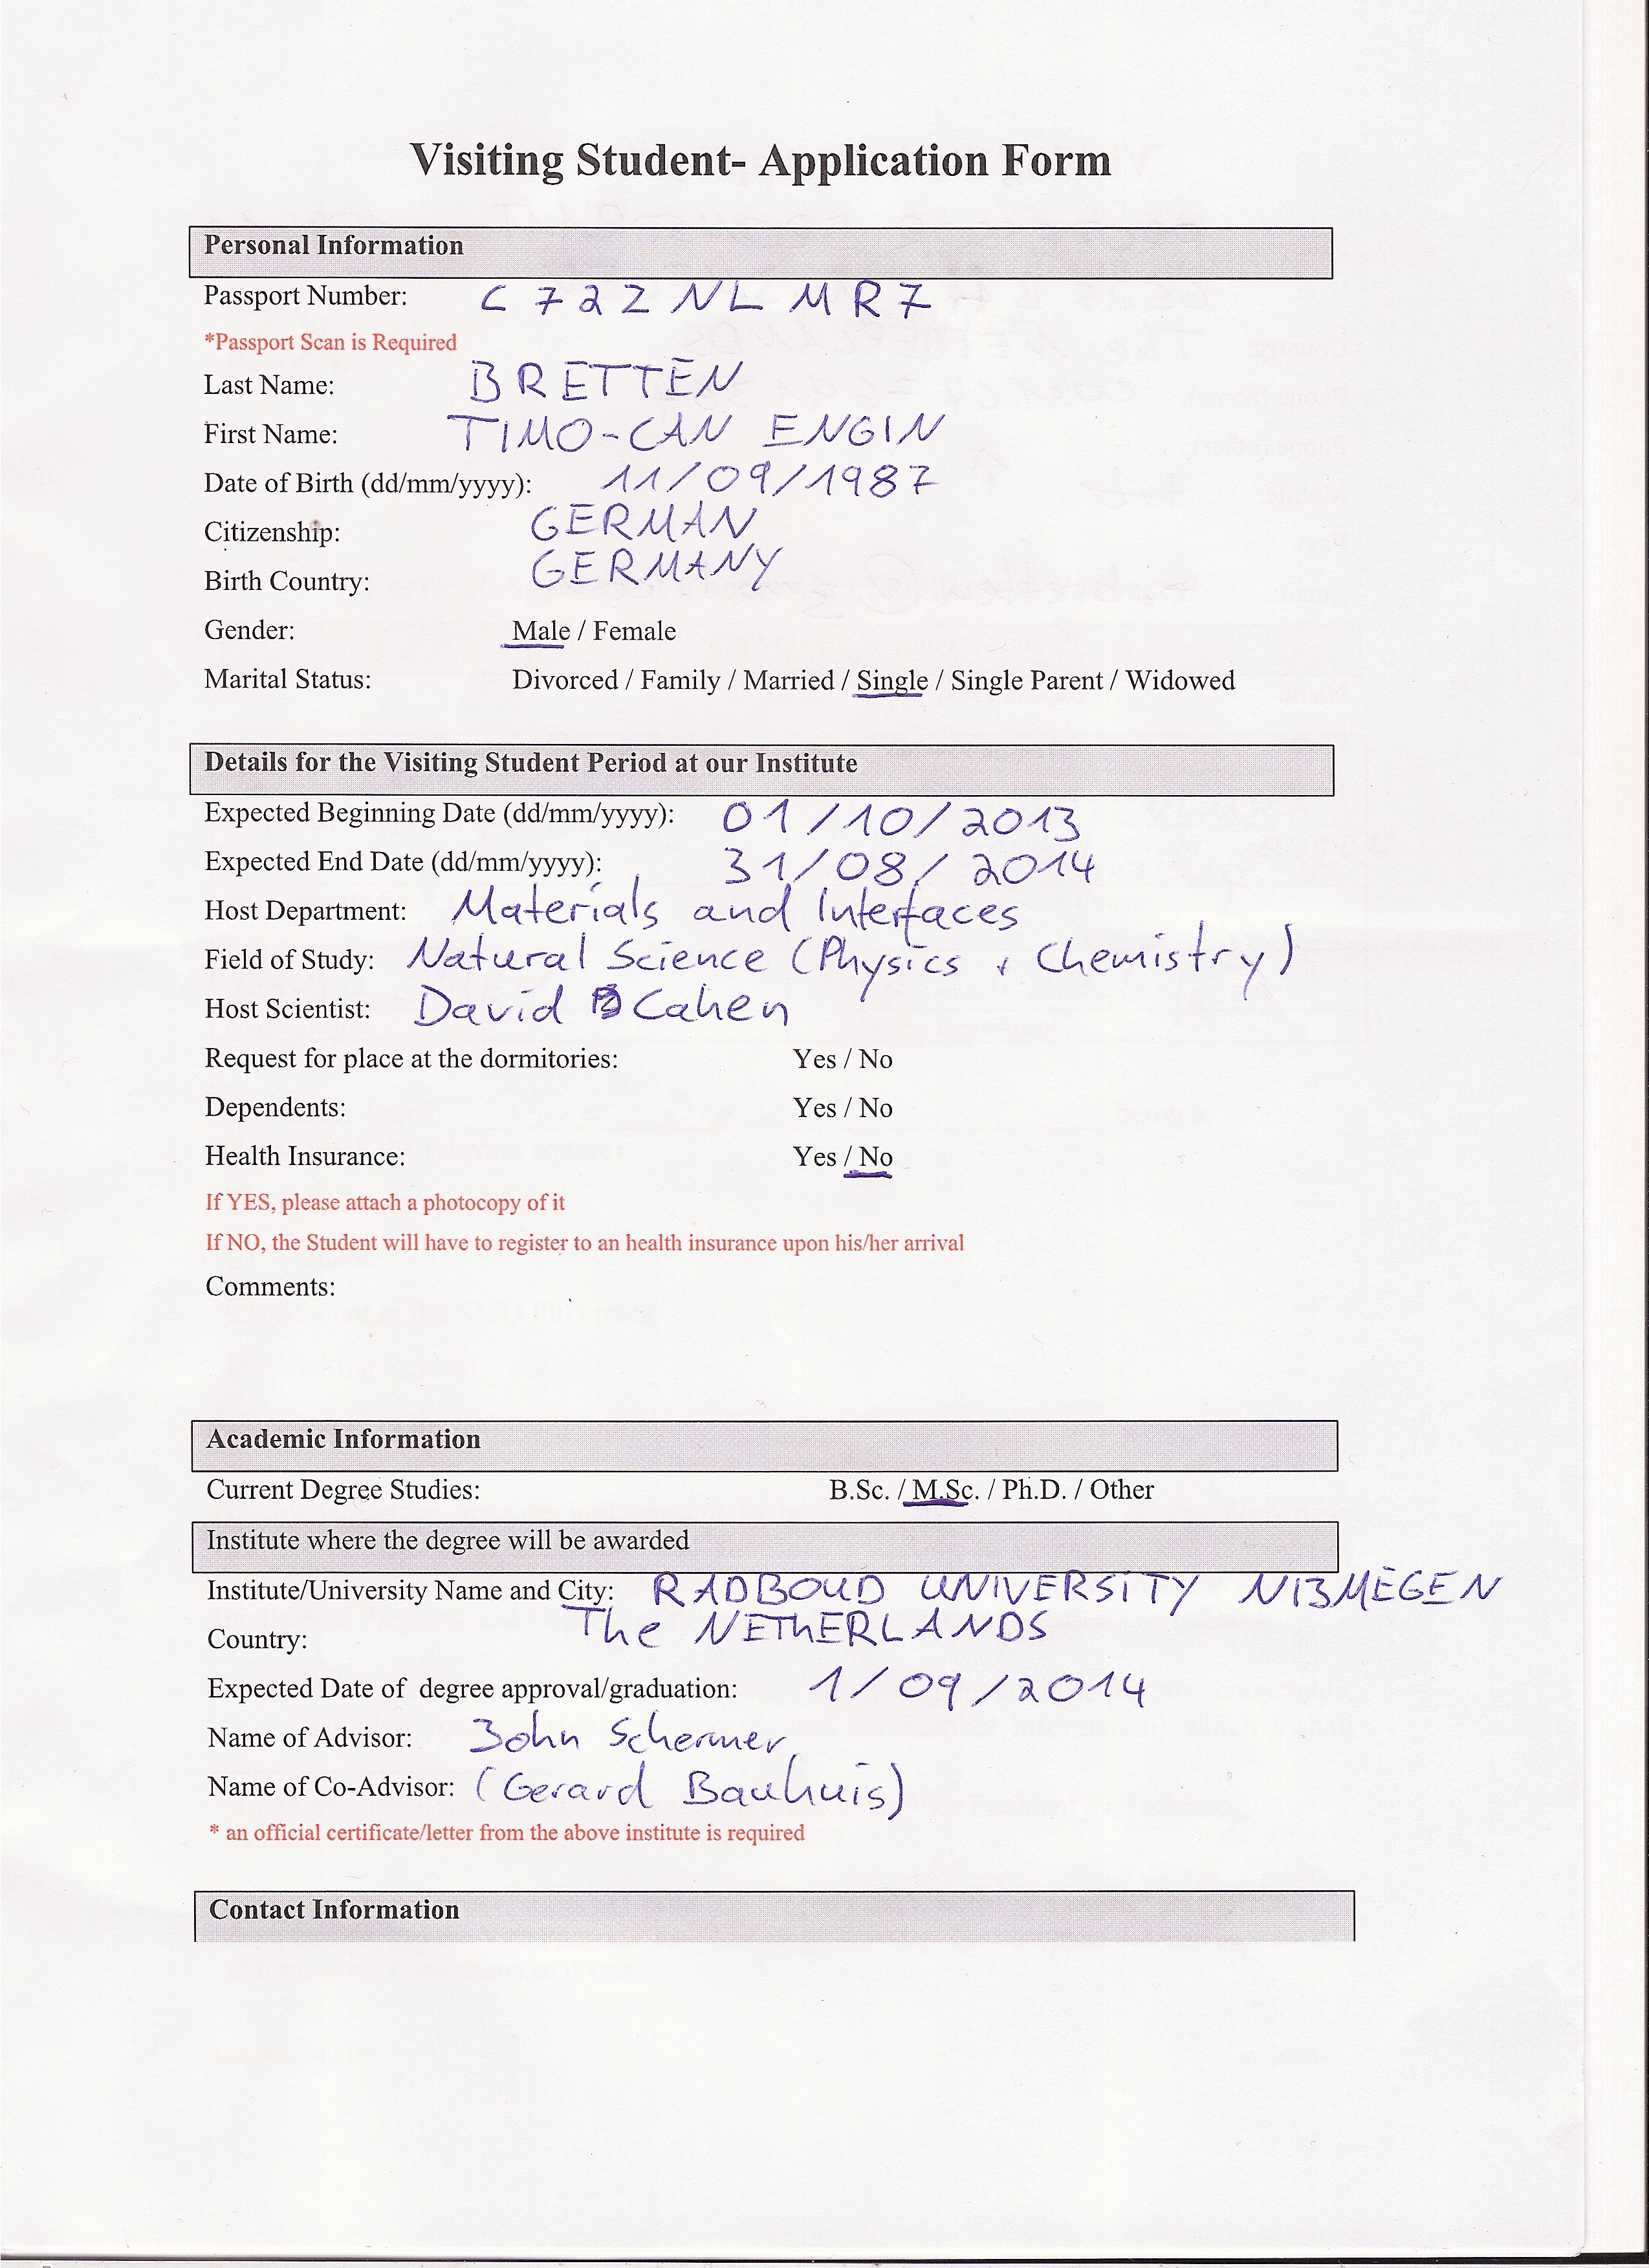 Visiting Student- Application Form
Personal Information
Passport Number: C722NLMR7
*Passport Scan is Required
Last Name: BRETTEN
First Name: TIMO-CAN ENGIN
Date of Birth (dd/mm/yyyy): 11/09/1987
Citizenship: GERMAN
Birth Country: GERMANY
Gender: Male / Female
Marital Status: Divorced / Family / Married / Single / Single Parent / Widowed
Details for the Visiting Student Period at our Institute
Expected Beginning Date (dd/mm/yyyy): 01/10/2013
Expected End Date (dd/mm/yyyy): 31/08/2014
Host Department: Materials and Interfaces
Field of Study: Natural Science (Physics + Chemistry)
Host Scientist: David Cahen
Request for place at the dormitories: Yes / No
Dependents: Yes / No
Health Insurance: Yes / No
If YES, please attach a photocopy of it
If NO, the Student will have to register to an health insurance upon his/her arrival
Comments:
Academic Information
Current Degree Studies: B.Sc. / M.Sc. / Ph.D. / Other
Institute where the degree will be awarded
Institute/University Name and City: RADBOUD UNIVERSITY NIJMEGEN
Country: The NETHERLANDS
Expected Date of degree approval/graduation: 1/09/2014
Name of Advisor: John Schermer
Name of Co-Advisor: (Gerard Bauhuis)
* an official certificate/letter from the above institute is required
Contact Information